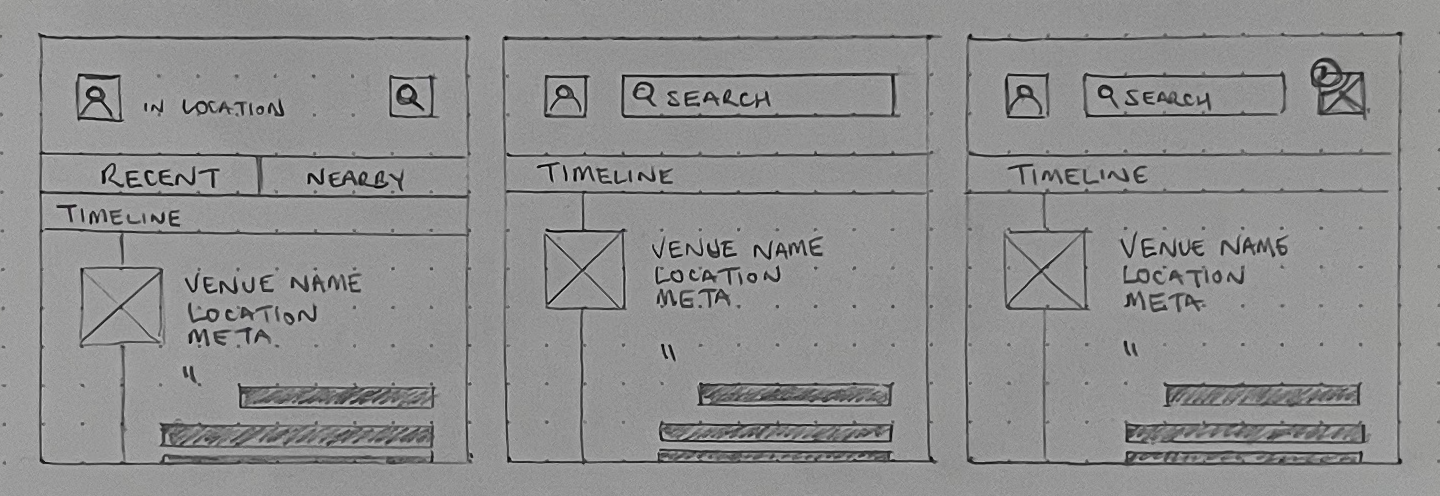 IN LOCATION
RECENT
NEARBY
TIMELINE
VENUE NAME
LOCATION
META.
"
SEARCH
TIMELINE
VENUE NAME
LOCATION
META.
"
SEARCH
TIMELINE
VENUE NAME
LOCATION
META.
"